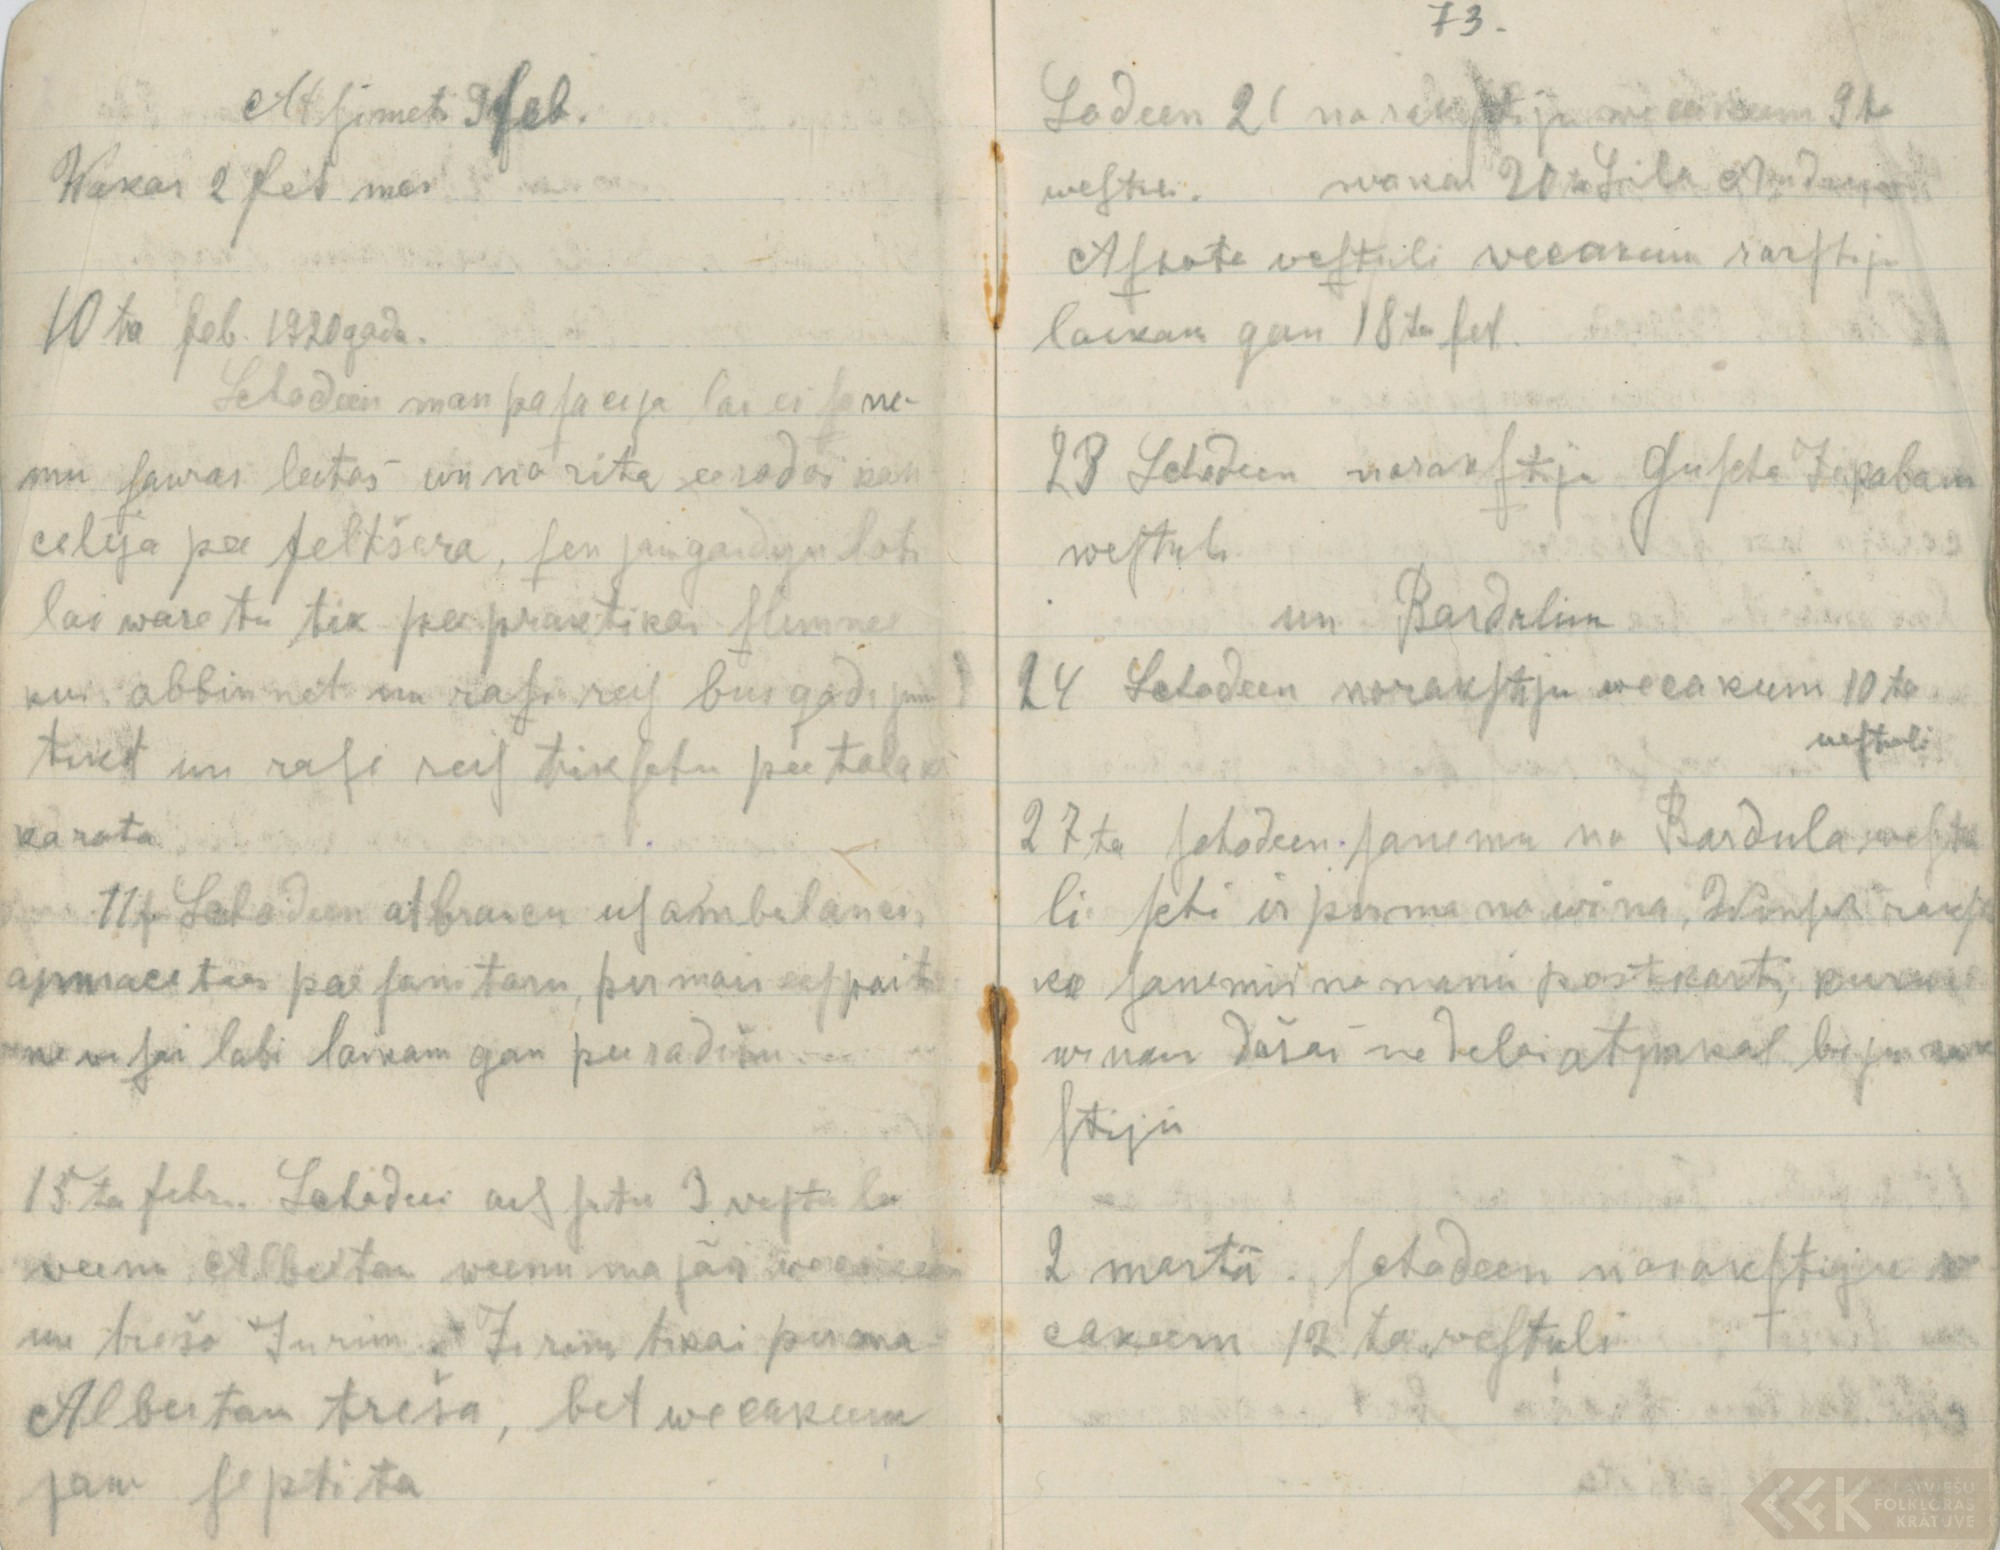 Atsimets 9 feb.
Wakar 2 feb mes
10 ta feb. 1920 gada.
Schodeen man pasaeeja lai es sane-
mu sawas leetas un no rita eerodos kan
celeja pee feltšera, sen jau gaidiju loti
lai waretu tik pee praktikas slimnee
un rasi reis bus gadijum
tikt un rasi reis tikschu pee talak
karata
11f Schodeen atbraucu us ambulanci,
pee sanitaru, pirmais eespaits
ne wisai labi laikam gan peeradišu
15 ta febr. Schodeen aissutu 3 vestules
weenu Albertam weenu majās weeakeem
un trešo Jurim. Jurim tikai pirma
Albertam treša, bet weeakeem
jau septita
73.
Sodeen 21 norakstiju weeakeem 9 ta
westuli. wakar 20 ta
vestuli veeakeem rakstiju
laikam gan 18 ta feb.
23 Schodeen norakstiju Guscha Jekabam
westuli
un Bardulim
24 Schodeen norakstiju weeakeem 10 ta
vestuli
27 ta schodeen sanemu no Bardula westu
li schi ir pirma no wina, Winsch raksta
ka sanemis no manis postkarti, kuru
winam dāšas nedelas atpakal biju rak
stijis
2 martā. schodeen norakstiju we
eakeem 12 ta westuli
LATVIEŠU
FOLKLORAS
KRĀTUVE